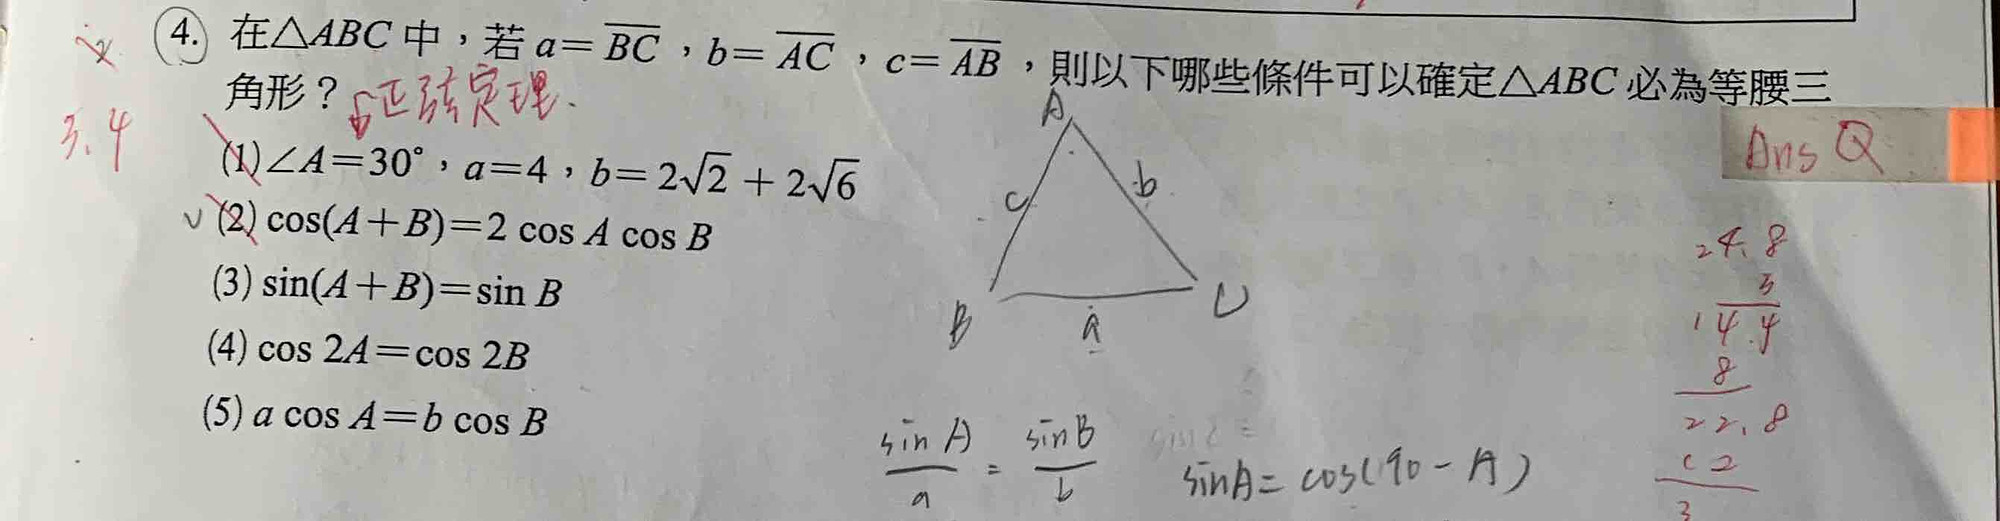 4. 在△ABC中，若 a=BC，b=AC，c=AB，則以下哪些條件可以確定△ABC必為等腰三
角形？
正弦定理.
3.4
(1) ∠A=30°，a=4，b=2√2+2√6
(2) cos(A+B)=2 cos A cos B
(3) sin(A+B)=sin B
(4) cos 2A=cos 2B
(5) a cos A=b cos B
A
c
b
B
a
C
Ans Q
24.8
3
14.4
8
22.8
sin A / a = sin B / b
sinA = cos(90-A)